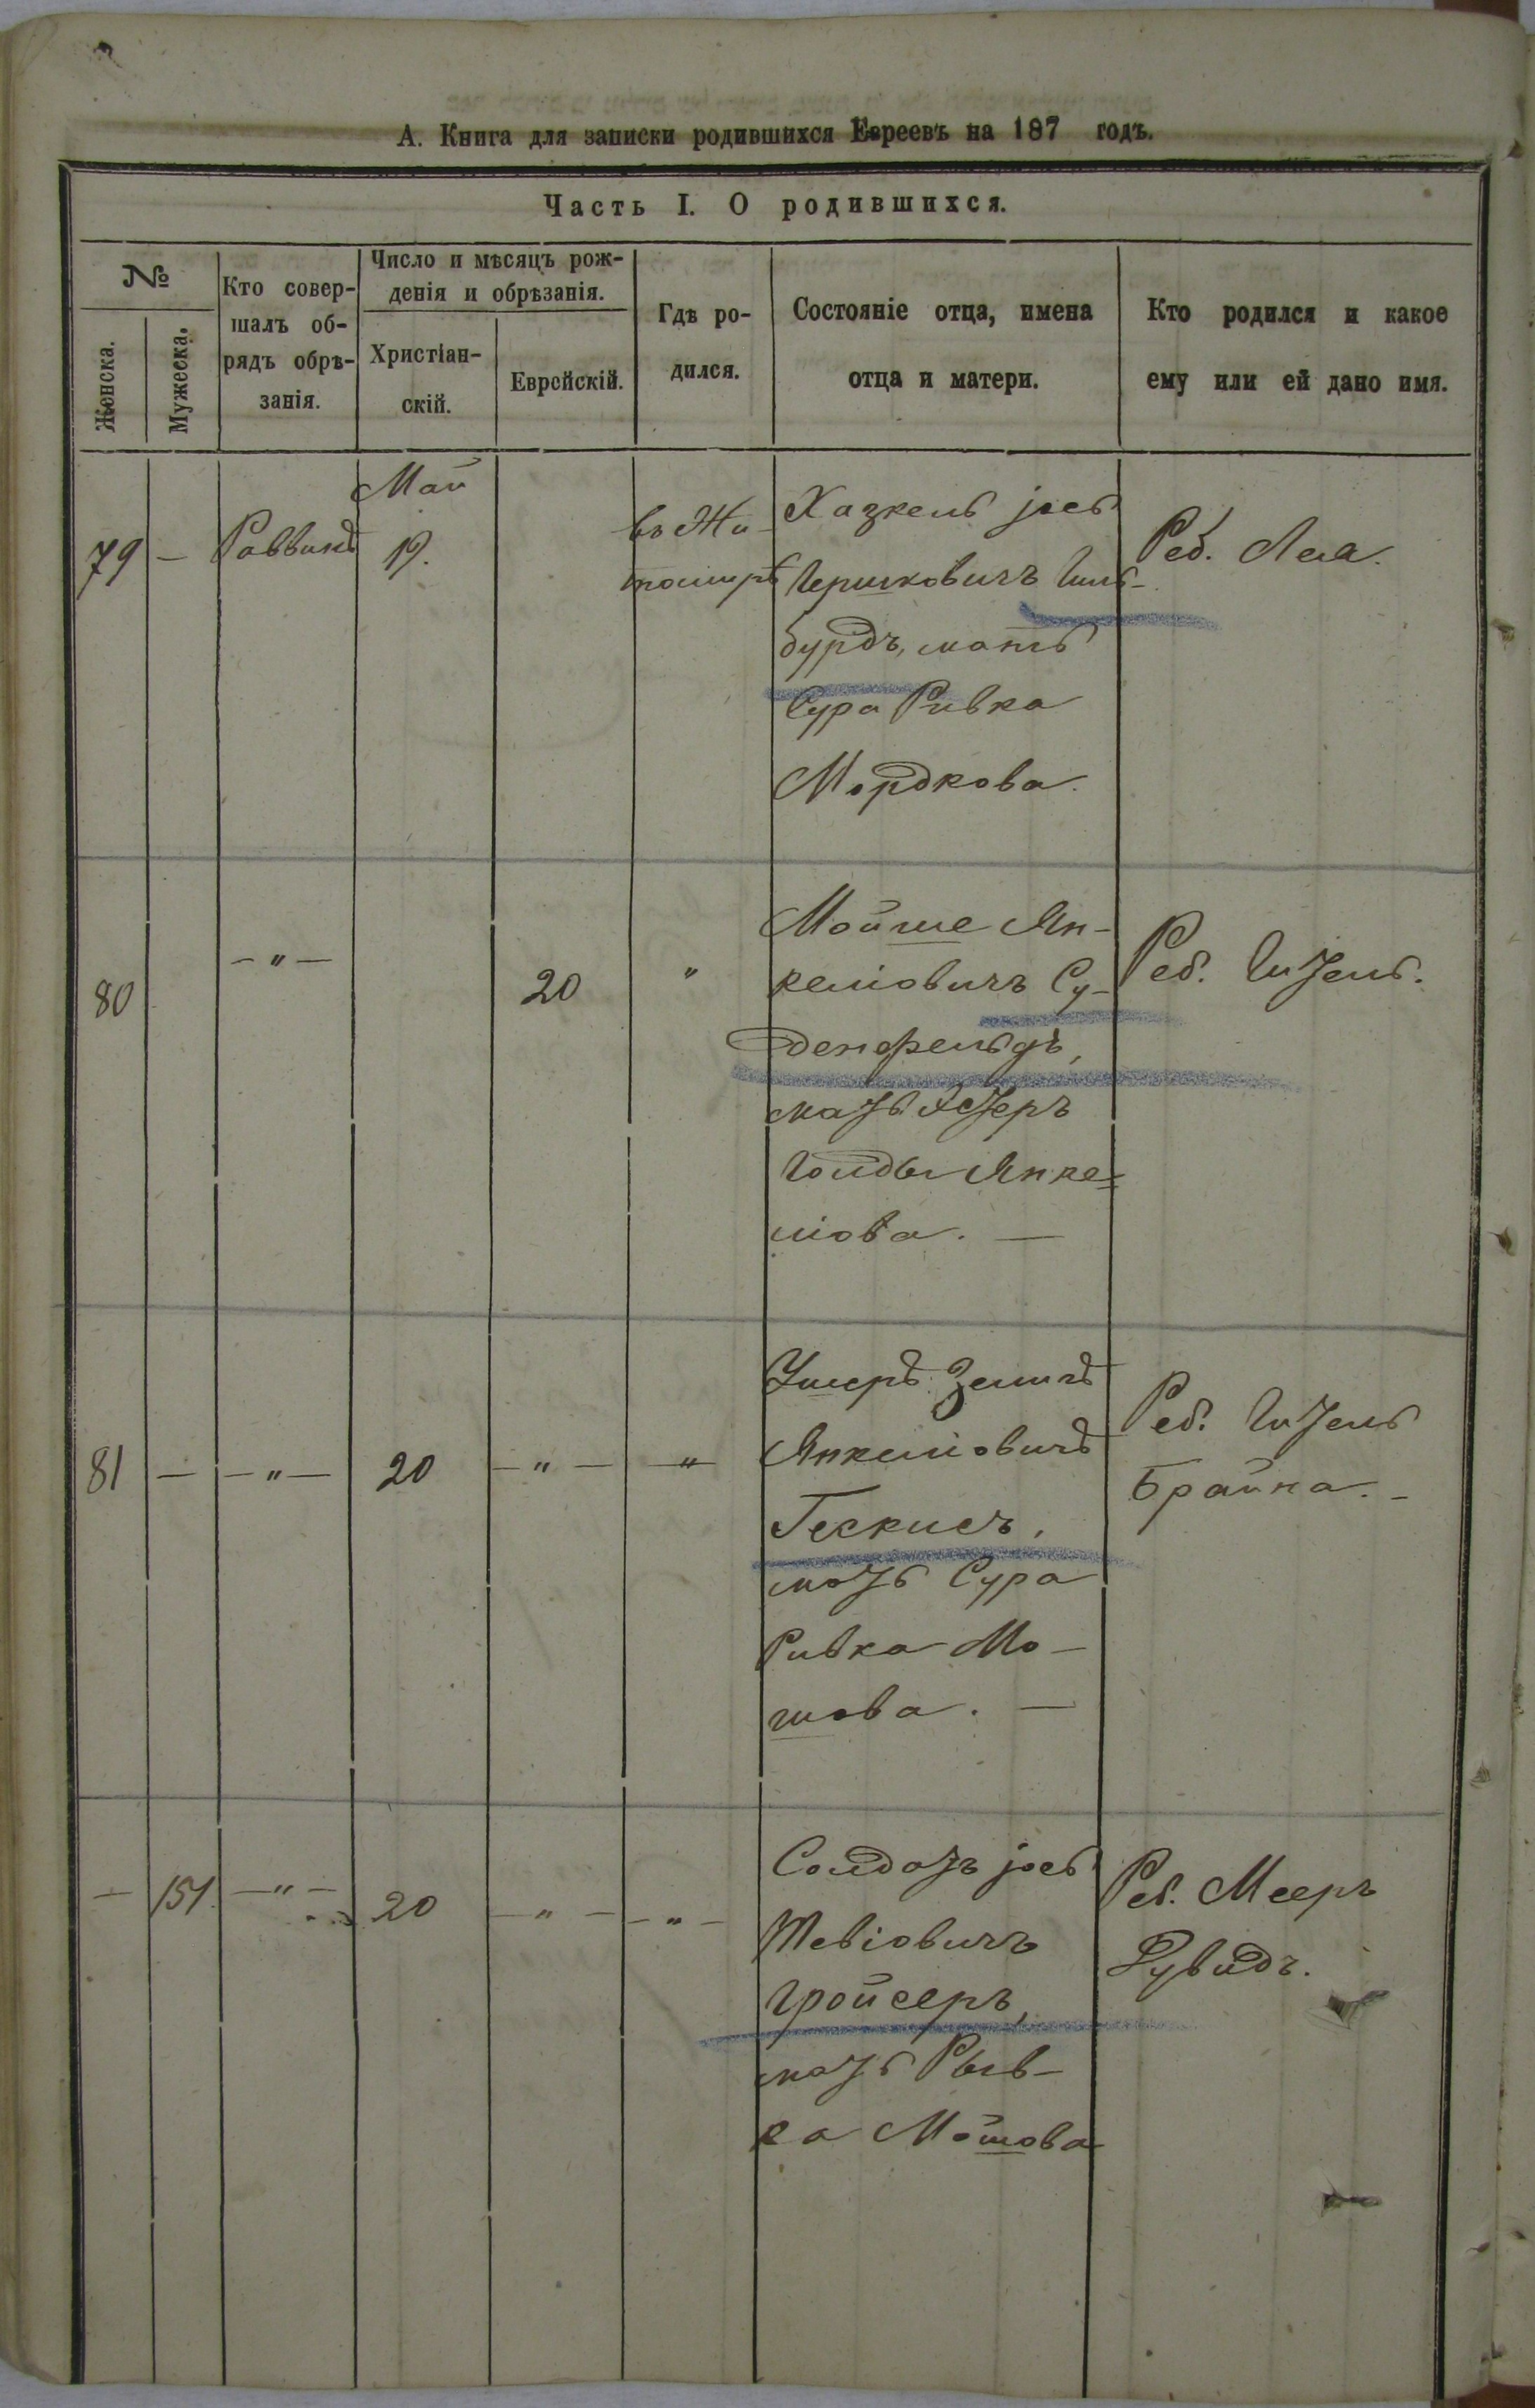 А. Книга для записки родившихся Евреевъ на 187 годъ.
Часть I. О родившихся.
№
Женска.
Мужеска.
Кто совер-
шалъ об-
рядъ обрѣ-
занія.
Число и мѣсяцъ рож-
денія и обрѣзанія.
Христіан-
скій.
Еврейскій.
Гдѣ ро-
дился.
Состояніе отца, имена
отца и матери.
Кто родился и какое
ему или ей дано имя.
79 — Раввинъ
Май
19.
въ Жи-
томирѣ
Хазкель іось
Гершковичъ Гиль-
бурдъ, мать
Сура Ривка
Мордкова.
Реб. Лея.
80 — " — 20 "
Мойше Ян-
келіовичъ Су-
денфельдъ,
мать Эстеръ
Голды Янке-
ліова. —
Реб. Гитель.
81 — — " — 20 — " — — " —
Ушеръ Зелигъ
Янкеліовичъ
Гескисъ,
мать Сура
Ривка Мо-
шова. —
Реб. Гитель
Брайна. -
— 151. — " — 20 — " — — " —
Солдатъ іось
Тевіовичъ
Гройсеръ,
мать Рыв-
ка Мошова
Реб. Мееръ
Дувидъ.